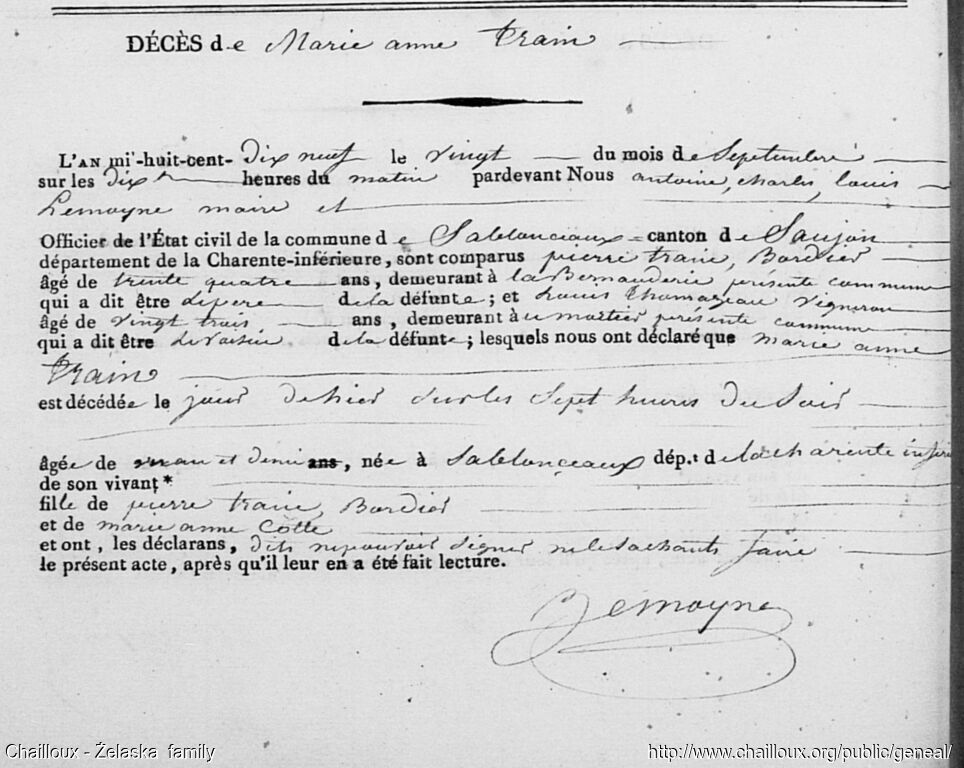 DÉCÈS de Marie anne train
L'AN mil-huit-cent-dix neuf le vingt du mois de Septembre
sur les dix heures du matin pardevant Nous antoine, charles, louis
Lemoyne maire et
Officier de l'État civil de la commune de Sablonceaux canton de Saujon
département de la Charente-inférieure, sont comparus pierre train, Bordier
âgé de trente quatre ans, demeurant à la Bernauderie présente commune
qui a dit être le pere de la défunte; et Louis vigneron
âgé de vingt trois ans, demeurant à présente commune
qui a dit être le voisin de la défunte; lesquels nous ont déclaré que marie anne
train
est décédée le jour dehier sur les Sept heures du Soir
âgée de un an et demi ans, née à Sablonceaux dép.t de la charente infre
de son vivant*
fille de pierre train, Bordier
et de marie anne Cotte
et ont, les déclarans, dits ne pouvoir Signer ne le Sachants faire
le présent acte, après qu'il leur en a été fait lecture.
Lemoyne
Chailloux - Żelaska family
http://www.chailloux.org/public/geneal/